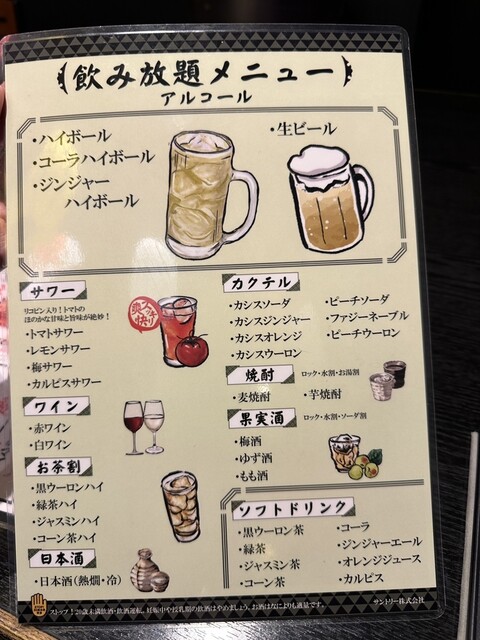 飲み放題メニュー
アルコール
・ハイボール
・コーラハイボール
・ジンジャー
ハイボール
・生ビール
サワー
リコピン入り!トマトの
ほのかな甘味と旨味が絶妙!
・トマトサワー
・レモンサワー
・梅サワー
・カルピスサワー
ワイン
・赤ワイン
・白ワイン
お茶割
・黒ウーロンハイ
・緑茶ハイ
・ジャスミンハイ
・コーン茶ハイ
日本酒
・日本酒(熱燗・冷)
カクテル
・カシスソーダ
・カシスジンジャー
・カシスオレンジ
・カシスウーロン
・ピーチソーダ
・ファジーネーブル
・ピーチウーロン
焼酎
ロック・水割・お湯割
・麦焼酎
・芋焼酎
果実酒
ロック・水割・ソーダ割
・梅酒
・ゆず酒
・もも酒
ソフトドリンク
・黒ウーロン茶
・緑茶
・ジャスミン茶
・コーン茶
・コーラ
・ジンジャーエール
・オレンジジュース
・カルピス
ストップ!20歳未満飲酒・飲酒運転。妊娠中や授乳期の飲酒はやめましょう。お酒はなによりも適量です。
サントリー株式会社